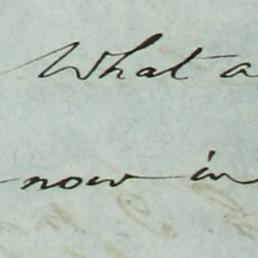 What a
now in